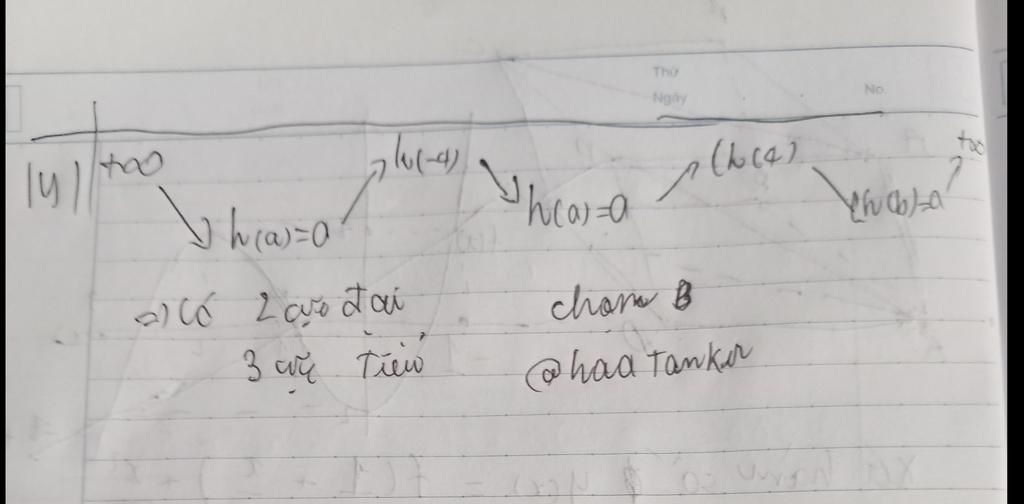 Thứ
Ngày No.
|y| +∞ h(-4) (h(4) +∞
h(a)=0 h(a)=0 h(b)=0
=) Có 2 cực đại chọn B
3 cực tiểu @haatanker